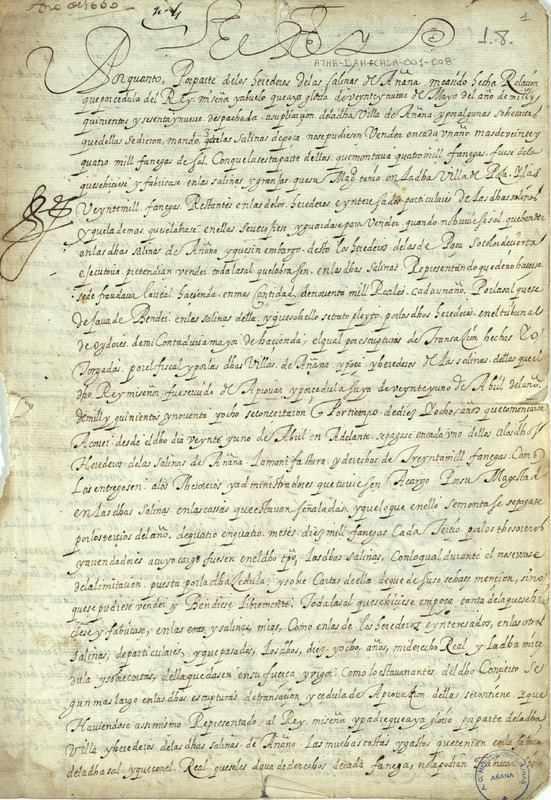 Año de 1600
1
El Rey
1.8.
ATHA-DAH-FCHSA-001-008
Por quanto, Por parte delos herederos delas salinas de Añana, measido hecha Relacion
que por cedula del Rey, mi señor y abuelo que aya gloria de veynte y nueve de Mayo del año de mill y
quinientos y sesenta y nueve despachada, a suplicaçion dela dha Villa de Añana y por algunas
que dellas se dieron, mando, que las Salinas de poça no se pudiesen Vender en cada Un año mas de veinte y
quatro mill fanegas de sal. Con que la sesta parte dellas, que montava quatro mill fanegas, fuese dela
que se hiciese y fabricase, en las salinas, y granjas, que su Magd tenia en La dha Villa de Poza. Y las
Veynte mill fanegas Restantes en las delos herederos e ynteresados particulares de Las dhas salinas
y que la demas, que se labrase en ellas, se
en las dhas Salinas de Añana, y que sin embargo desto los herederos de las de Poça
executoria, pretendian vender toda la sal que labrasen, en las dhas Salinas. Representando que de no hacerse
se defraudava la real hacienda en mas Cantidad, de noventa mill Reales, cada un año, Por la sal que se
dejava de Vender en las Salinas della, y que sobrello se trato pleyto, por los dhos herederos, en el tribunal
de oydores, de mi Contaduria mayor de hacienda; el qual por escripturas de Transaçion hechas y o
torgadas, por el fiscal y por las dhas Villas, de Añana, y poça, y herederos de las salinas, dellas que el
dho Rey mi señor, fue servido de Aprovar, y por cedula suya de veynte y uno de Abril del año
de mill y quinientos y noventa y ocho se concertaron Por tiempo de diez y ocho años que començaron
A correr desde el dho dia veynte y uno de Abril en Adelante, se pagase en cada Uno dellos, a los dhos
Herederos delas Salinas de Añana, La monifatura, y derechos de treynta mill fanegas, Como
Las entregasen, a los Thesoreros y administradores que tuviesen A cargo Por su Magestad
en Las dhas salinas, en las casas que estavan señaladas, y que lo que en ello se montase se pagase
por los tercios del año, de quatro en quatro meses, diez mill fanegas Cada Tercio por los thesoreros
y arrendadores a cuyo cargo fuesen en el dho tpo, Las dhas salinas, Con lo qual durante el no se usase
dela limitacion, puesta por la dha Cedula, y sobre Cartas de ella de que de suso se haçe mençion, sino
que se pudiese vender y Vendiese Libremente, Toda la sal que se hiciese en poça tanto dela que se hi
ciese y fabricase, en las eras y salinas, mias, Como en las de los herederos e ynteresados, en las otras
salinas, de particulares, y que pasados, Los dhos, diez y ocho, años, mi derecho Real, y La dha mi ce
dula y sobrecartas, della quedasen en su fuerça, y vigor, Como lo estavan antes, del dho Conçierto se
gun mas largo en las dhas escripturas de transaçion y cedula de Aprovaçion dellas se contiene. Y que
Haviendose assi mismo Representado, al Rey, mi señor y padre que aya gloria, por parte de la dha
Villa y herederos delas dhas salinas de Añana. Las muchas costas y gastos que tenian en la fabrica
dela dha sal y que con el Real que se les dava de derechos de cada fanega, no la podian
AÑANA